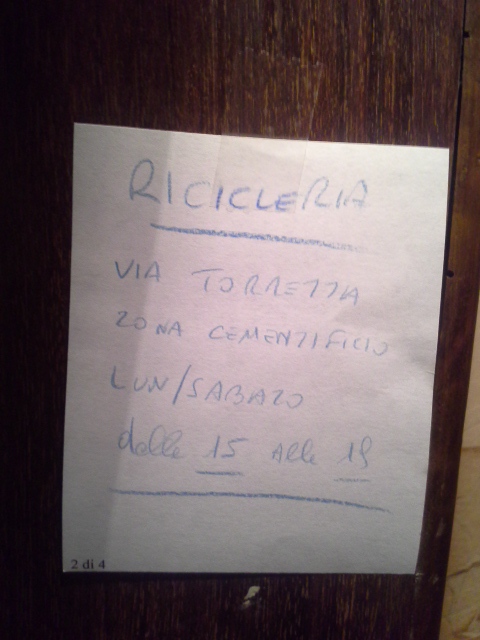 RICICLERIA
VIA TORRETTA
ZONA CEMENTIFICIO
LUN/SABATO
dalle 15 alle 19
2 di 4